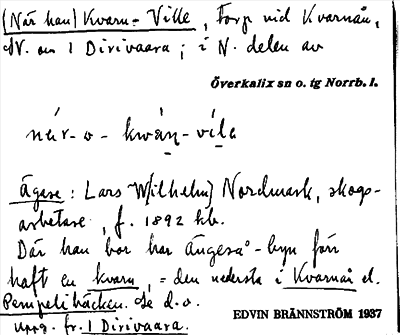 (När han) Kvarn-Ville, Torp vid Kvarnån,
N. om 1 Dirivaara; i N. delen av
Överkalix sn o. tg Norrb. l.
Ägare: Lars W[ilhelm] Nordmark, skogs-
arbetare, f. 1892 hb.
Där han bor har Ängeså-byn förr
haft en kvarn, = den nedersta i Kvarnån el.
Pempelibäcken. Se d.o.
Uppg. fr. 1 Dirivaara.
EDVIN BRÄNNSTRÖM 1937